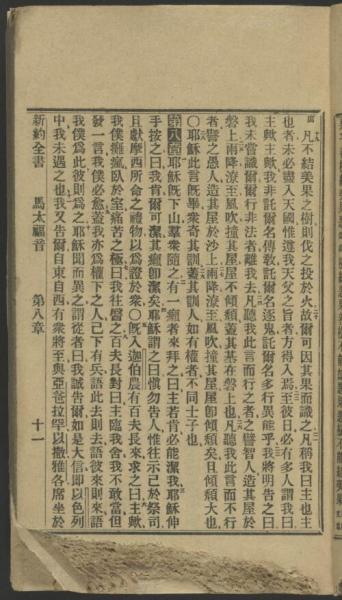 凡不結美果之樹則伐之投於火故爾可因其果而識之凡稱我曰主也主
也者未必盡入天國惟遵我天父之旨者方得入焉至彼日必有多人謂我曰
主歟主歟我非託爾名傳教託爾名逐鬼託爾名多行異能乎我將明告之曰
我未嘗識爾爾行非法者離我去凡聽我此言而行之者譬智人造其屋於
磐上雨降潦至風吹撞其屋屋不傾頹蓋其基在磐上也凡聽我此言而不行
者譬之愚人造其屋於沙上雨降潦至風吹撞其屋屋即傾頹矣且傾頹大也
〇耶穌此言既畢衆奇其訓蓋其訓人如有權者不同士子也
第八章耶穌既下山羣衆隨之有一癩者來拜之曰主若肯必能潔我耶穌伸
手按之曰我肯爾可潔其癩即潔矣耶穌謂之曰愼勿告人惟往示己於祭司
且獻摩西所命之禮物以爲證於衆〇既入迦伯農有百夫長來求之曰主歟
我僕癱瘋臥於室痛苦之極曰我往醫之百夫長對曰主臨我舍我不敢當但
發一言我僕必愈蓋我亦爲權下之人己下有兵語此去則去語彼來則來語
我僕爲此彼則爲之耶穌聞而異之謂從者曰我誠告爾如是大信即以色列
中我未遇之也我又告爾自東自西有衆將至與亞伯拉罕以撒雅各席坐於
新約全書 馬太福音 第八章 十一